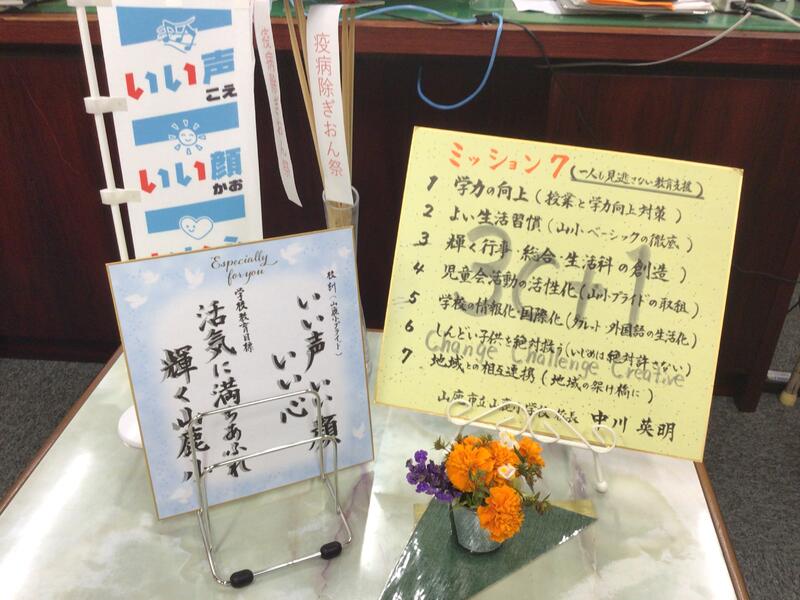 いい声
こえ
いい顔
かお
疫病除ぎおん祭
Especially
for you
校訓(山鹿小プライド)
いい声いい顔
いい心
学校教育目標
活気に満ちあふれ
輝く山鹿小
ミッション7 (一人も見逃さない教育支援)
1 学力の向上(授業と学力向上対策)
2 よい生活習慣(山小・ベーシックの徹底)
3 輝く行事・総合・生活科の創造)
4 児童会活動の活性化(山小・プライドの取組)
5 学校の情報化・国際化(タブレット・外国語の生活化)
6 しんどい子供を絶対救う(いじめは絶対許さない)
7 地域との相互連携(地域の架け橋に)
3C-1
Change Challenge Creative
山鹿市立山鹿小学校 校長 中川 英明